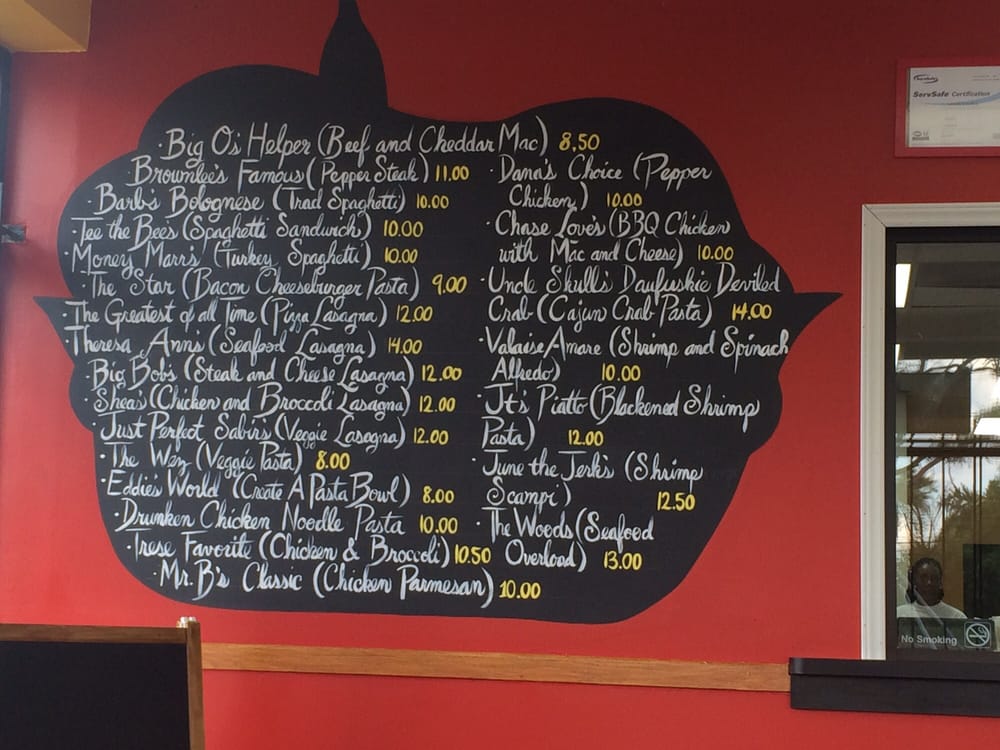 ·Big O's Helper (Beef and Cheddar Mac) 8.50
Brownlee's Famous (Pepper Steak) 11.00
·Barb's Bolognese (Trad Spaghetti) 10.00
·Tee the Bees (Spaghetti Sandwich) 10.00
·Money Marr's (Turkey Spaghetti) 10.00
·The Star (Bacon Cheeseburger Pasta) 9.00
·The Greatest of all Time (Pizza Lasagna) 12.00
·Theresa Ann's (Seafood Lasagna) 14.00
·Big Bob's (Steak and Cheese Lasagna) 12.00
·Sheas (Chicken and Broccoli Lasagna) 12.00
·Just Perfect Sabir's (Veggie Lasagna) 12.00
·The Wez (Veggie Pasta) 8.00
·Eddie's World (Create A Pasta Bowl) 8.00
·Drunken Chicken Noodle Pasta 10.00
·Trese Favorite (Chicken & Broccoli) 10.50
·Mr. B's Classic (Chicken Parmesan) 10.00
·Dana's Choice (Pepper
Chicken) 10.00
·Chase Love's (BBQ Chicken
with Mac and Cheese) 10.00
·Uncle Skull's Daufuskie Deviled
Crab (Cajun Crab Pasta) 14.00
·Valaise Amare (Shrimp and Spinach
Alfredo) 10.00
·It's Piatto (Blackened Shrimp
Pasta) 12.00
·June the Jerk's (Shrimp
Scampi) 12.50
·The Woods (Seafood
Overload) 13.00
ServSafe Certification
No Smoking